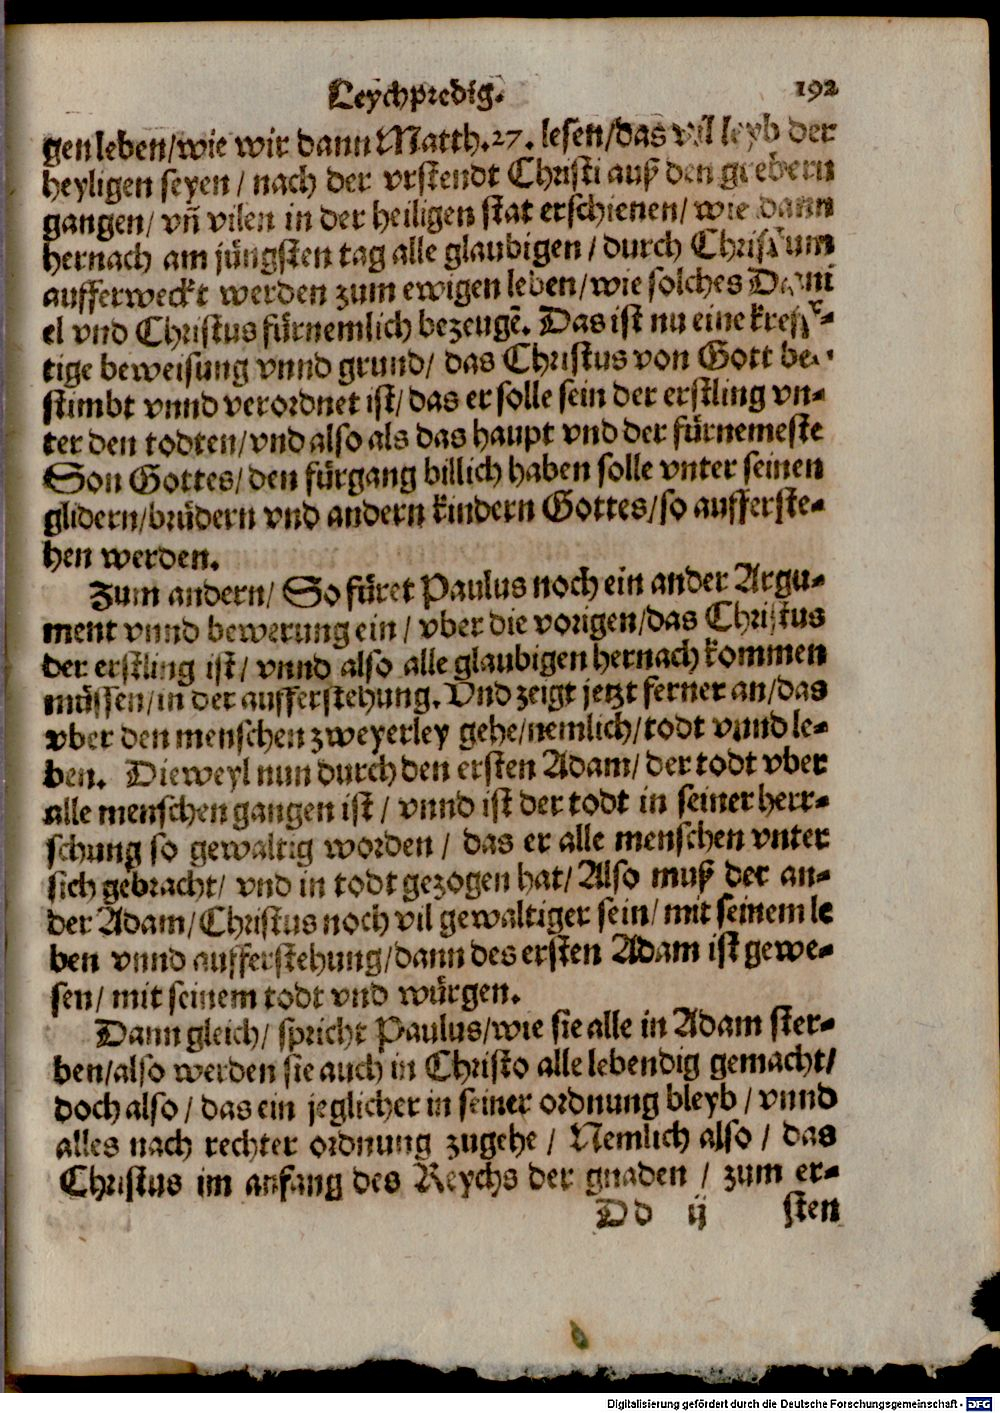 Leychpredig. 192
gen leben/wie wir dann Matth.27. lesen/das vil leyb der
heyligen seyen / nach der vrstendt Christi auß den grebern
gangen/ vñ vilen in der heiligen stat erschienen/ wie dann
hernach am jüngsten tag alle glaubigen / durch Christum
aufferweckt werden zum ewigen leben/wie solches Dani
el vnd Christus fürnemlich bezeugẽ. Das ist nu eine kreff-
tige beweisung vnnd grund/ das Christus von Gott be-
stimbt vnnd verordnet ist/ das er solle sein der erstling vn-
ter den todten/vnd also als das haupt vnd der fürnemeste
Son Gottes/ den fürgang billich haben solle vnter seinen
glidern/brüdern vnd andern kindern Gottes/so aufferste-
hen werden.
Zum andern/ So füret Paulus noch ein ander Argu-
ment vnnd bewerung ein / vber die vorigen/das Christus
der erstling ist/ vnnd also alle glaubigen hernach kommen
müssen/in der aufferstehung. Vnd zeigt jetzt ferner an/das
vber den menschen zweyerley gehe/nemlich/todt vnnd le-
ben. Dieweyl nun durch den ersten Adam/ der todt vber
alle menschen gangen ist / vnnd ist der todt in seiner herr-
schung so gewaltig worden / das er alle menschen vnter
sich gebracht/ vnd in todt gezogen hat/ Also muß der an-
der Adam/Christus noch vil gewaltiger sein/ mit seinem le
ben vnnd aufferstehung/dann des ersten Adam ist gewe-
sen/ mit seinem todt vnd würgen.
Dann gleich/ spricht Paulus/wie sie alle in Adam ster-
ben/also werden sie auch in Christo alle lebendig gemacht/
doch also / das ein jeglicher in seiner ordnung bleyb / vnnd
alles nach rechter ordnung zugehe / Nemlich also / das
Christus im anfang des Reychs der gnaden / zum er-
Dd ij sten
Digitalisierung gefördert durch die Deutsche Forschungsgemeinschaft - DFG